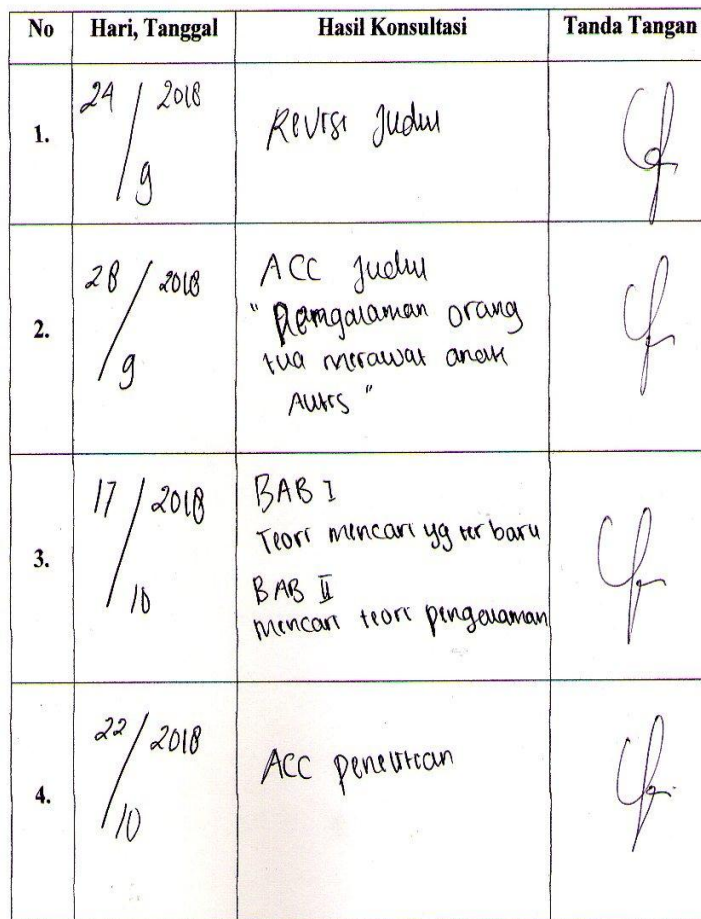 No Hari, Tanggal Hasil Konsultasi Tanda Tangan
1. 24/9 2018 Revisi Judul
2. 28/9 2018 ACC Judul
"Pemgalaman orang
tua merawat anak
Autis"
3. 17/10 2018 BAB I
Teori mencari yg terbaru
BAB II
mencari teori pengalaman
4. 22/10 2018 ACC penelitian